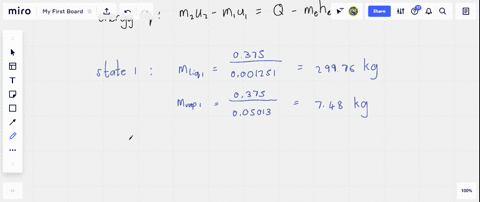 miro My First Board Share
energy eqn: m₂u₂ - m₁u₁ = Q - mₑhₑ
state 1 : mLiq1 = 0.375 / 0.001251 = 299.76 kg
mvap1 = 0.375 / 0.05013 = 7.48 kg
100%